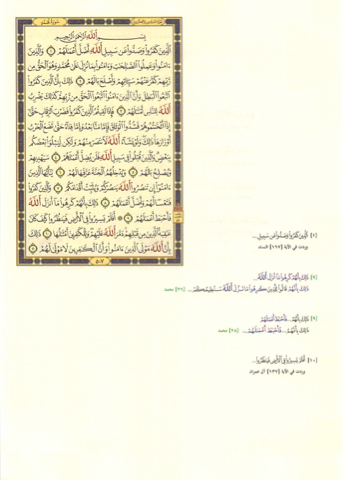 سورة محمد
بِسْمِ اللَّهِ الرَّحْمَٰنِ الرَّحِيمِ
الَّذِينَ كَفَرُوا وَصَدُّوا عَن سَبِيلِ اللَّهِ أَضَلَّ أَعْمَٰلَهُمْ ١ وَالَّذِينَ
ءَامَنُوا وَعَمِلُوا الصَّٰلِحَٰتِ وَءَامَنُوا بِمَا نُزِّلَ عَلَىٰ مُحَمَّدٍ وَهُوَ الْحَقُّ مِن
رَّبِّهِمْ كَفَّرَ عَنْهُمْ سَيِّـَٔاتِهِمْ وَأَصْلَحَ بَالَهُمْ ٢ ذَٰلِكَ بِأَنَّ الَّذِينَ كَفَرُوا
اتَّبَعُوا الْبَٰطِلَ وَأَنَّ الَّذِينَ ءَامَنُوا اتَّبَعُوا الْحَقَّ مِن رَّبِّهِمْ كَذَٰلِكَ يَضْرِبُ
اللَّهُ لِلنَّاسِ أَمْثَٰلَهُمْ ٣ فَإِذَا لَقِيتُمُ الَّذِينَ كَفَرُوا فَضَرْبَ الرِّقَابِ حَتَّىٰ
إِذَا أَثْخَنتُمُوهُمْ فَشُدُّوا الْوَثَاقَ فَإِمَّا مَنًّا بَعْدُ وَإِمَّا فِدَاءً حَتَّىٰ تَضَعَ الْحَرْبُ
أَوْزَارَهَا ذَٰلِكَ وَلَوْ يَشَاءُ اللَّهُ لَانتَصَرَ مِنْهُمْ وَلَٰكِن لِّيَبْلُوَا بَعْضَكُم
بِبَعْضٍ وَالَّذِينَ قُتِلُوا فِي سَبِيلِ اللَّهِ فَلَن يُضِلَّ أَعْمَٰلَهُمْ ٤ سَيَهْدِيهِمْ
وَيُصْلِحُ بَالَهُمْ ٥ وَيُدْخِلُهُمُ الْجَنَّةَ عَرَّفَهَا لَهُمْ ٦ يَٰأَيُّهَا الَّذِينَ
ءَامَنُوا إِن تَنصُرُوا اللَّهَ يَنصُرْكُمْ وَيُثَبِّتْ أَقْدَامَكُمْ ٧ وَالَّذِينَ كَفَرُوا
فَتَعْسًا لَّهُمْ وَأَضَلَّ أَعْمَٰلَهُمْ ٨ ذَٰلِكَ بِأَنَّهُمْ كَرِهُوا مَا أَنزَلَ اللَّهُ
فَأَحْبَطَ أَعْمَٰلَهُمْ ٩ أَفَلَمْ يَسِيرُوا فِي الْأَرْضِ فَيَنظُرُوا كَيْفَ كَانَ
عَٰقِبَةُ الَّذِينَ مِن قَبْلِهِمْ دَمَّرَ اللَّهُ عَلَيْهِمْ وَلِلْكَٰفِرِينَ أَمْثَٰلُهَا ١٠ ذَٰلِكَ
بِأَنَّ اللَّهَ مَوْلَى الَّذِينَ ءَامَنُوا وَأَنَّ الْكَٰفِرِينَ لَا مَوْلَىٰ لَهُمْ ١١
٥٠٧
[١] الَّذِينَ كَفَرُوا وَصَدُّوا عَن سَبِيلِ...
وردت في الآية [١٦٧] النساء
[٩] ذَٰلِكَ بِأَنَّهُمْ كَرِهُوا مَا أَنزَلَ اللَّهُ...
ذَٰلِكَ بِأَنَّهُمْ قَالُوا لِلَّذِينَ كَرِهُوا مَا نَزَّلَ اللَّهُ سَنُطِيعُكُمْ... [٢٦] محمد
[٩] ذَٰلِكَ بِأَنَّهُمْ... فَأَحْبَطَ أَعْمَٰلَهُمْ
ذَٰلِكَ بِأَنَّهُمُ... فَأَحْبَطَ أَعْمَٰلَهُمْ... [٢٨] محمد
[١٠] أَفَلَمْ يَسِيرُوا فِي الْأَرْضِ فَيَنظُرُوا...
وردت في الآية [١٣٧] آل عمران